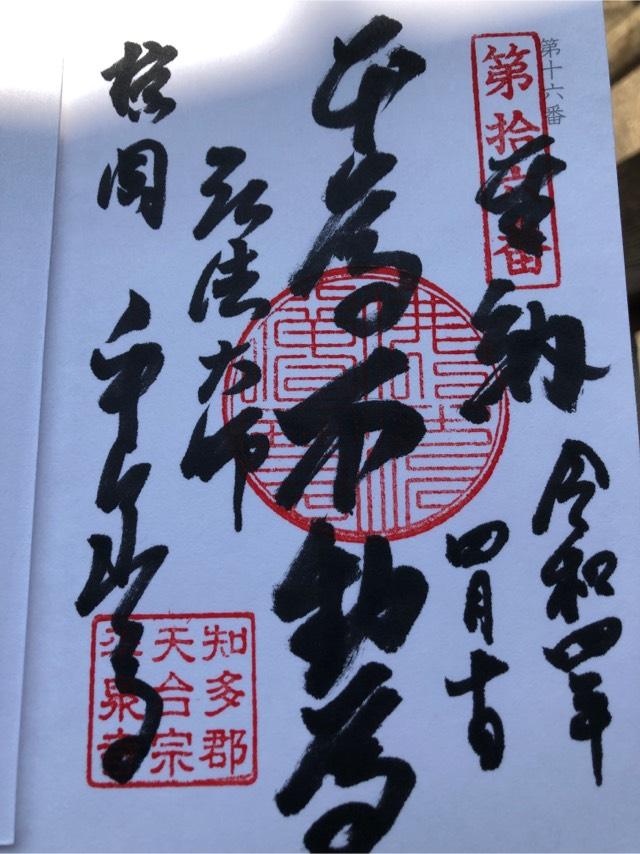 第十六番
第拾六番
奉納
令和四年
四月十日
本尊不動尊
弘法大師
椋岡 平泉寺
知多郡
天台宗
平泉寺